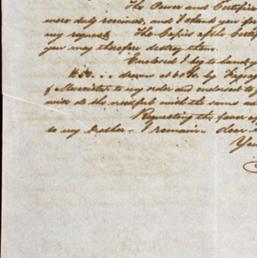 The Power and Certific
were duly received, and I thank you for
my request. The Copies of the Certif
you may therefore destroy them.
Enclosed I beg to hand y
£50... drawn at 60 by
of to my order and endorsed to y
will do the needful with the same ad
Requesting the favor of
to my Brother. I remain dear
You